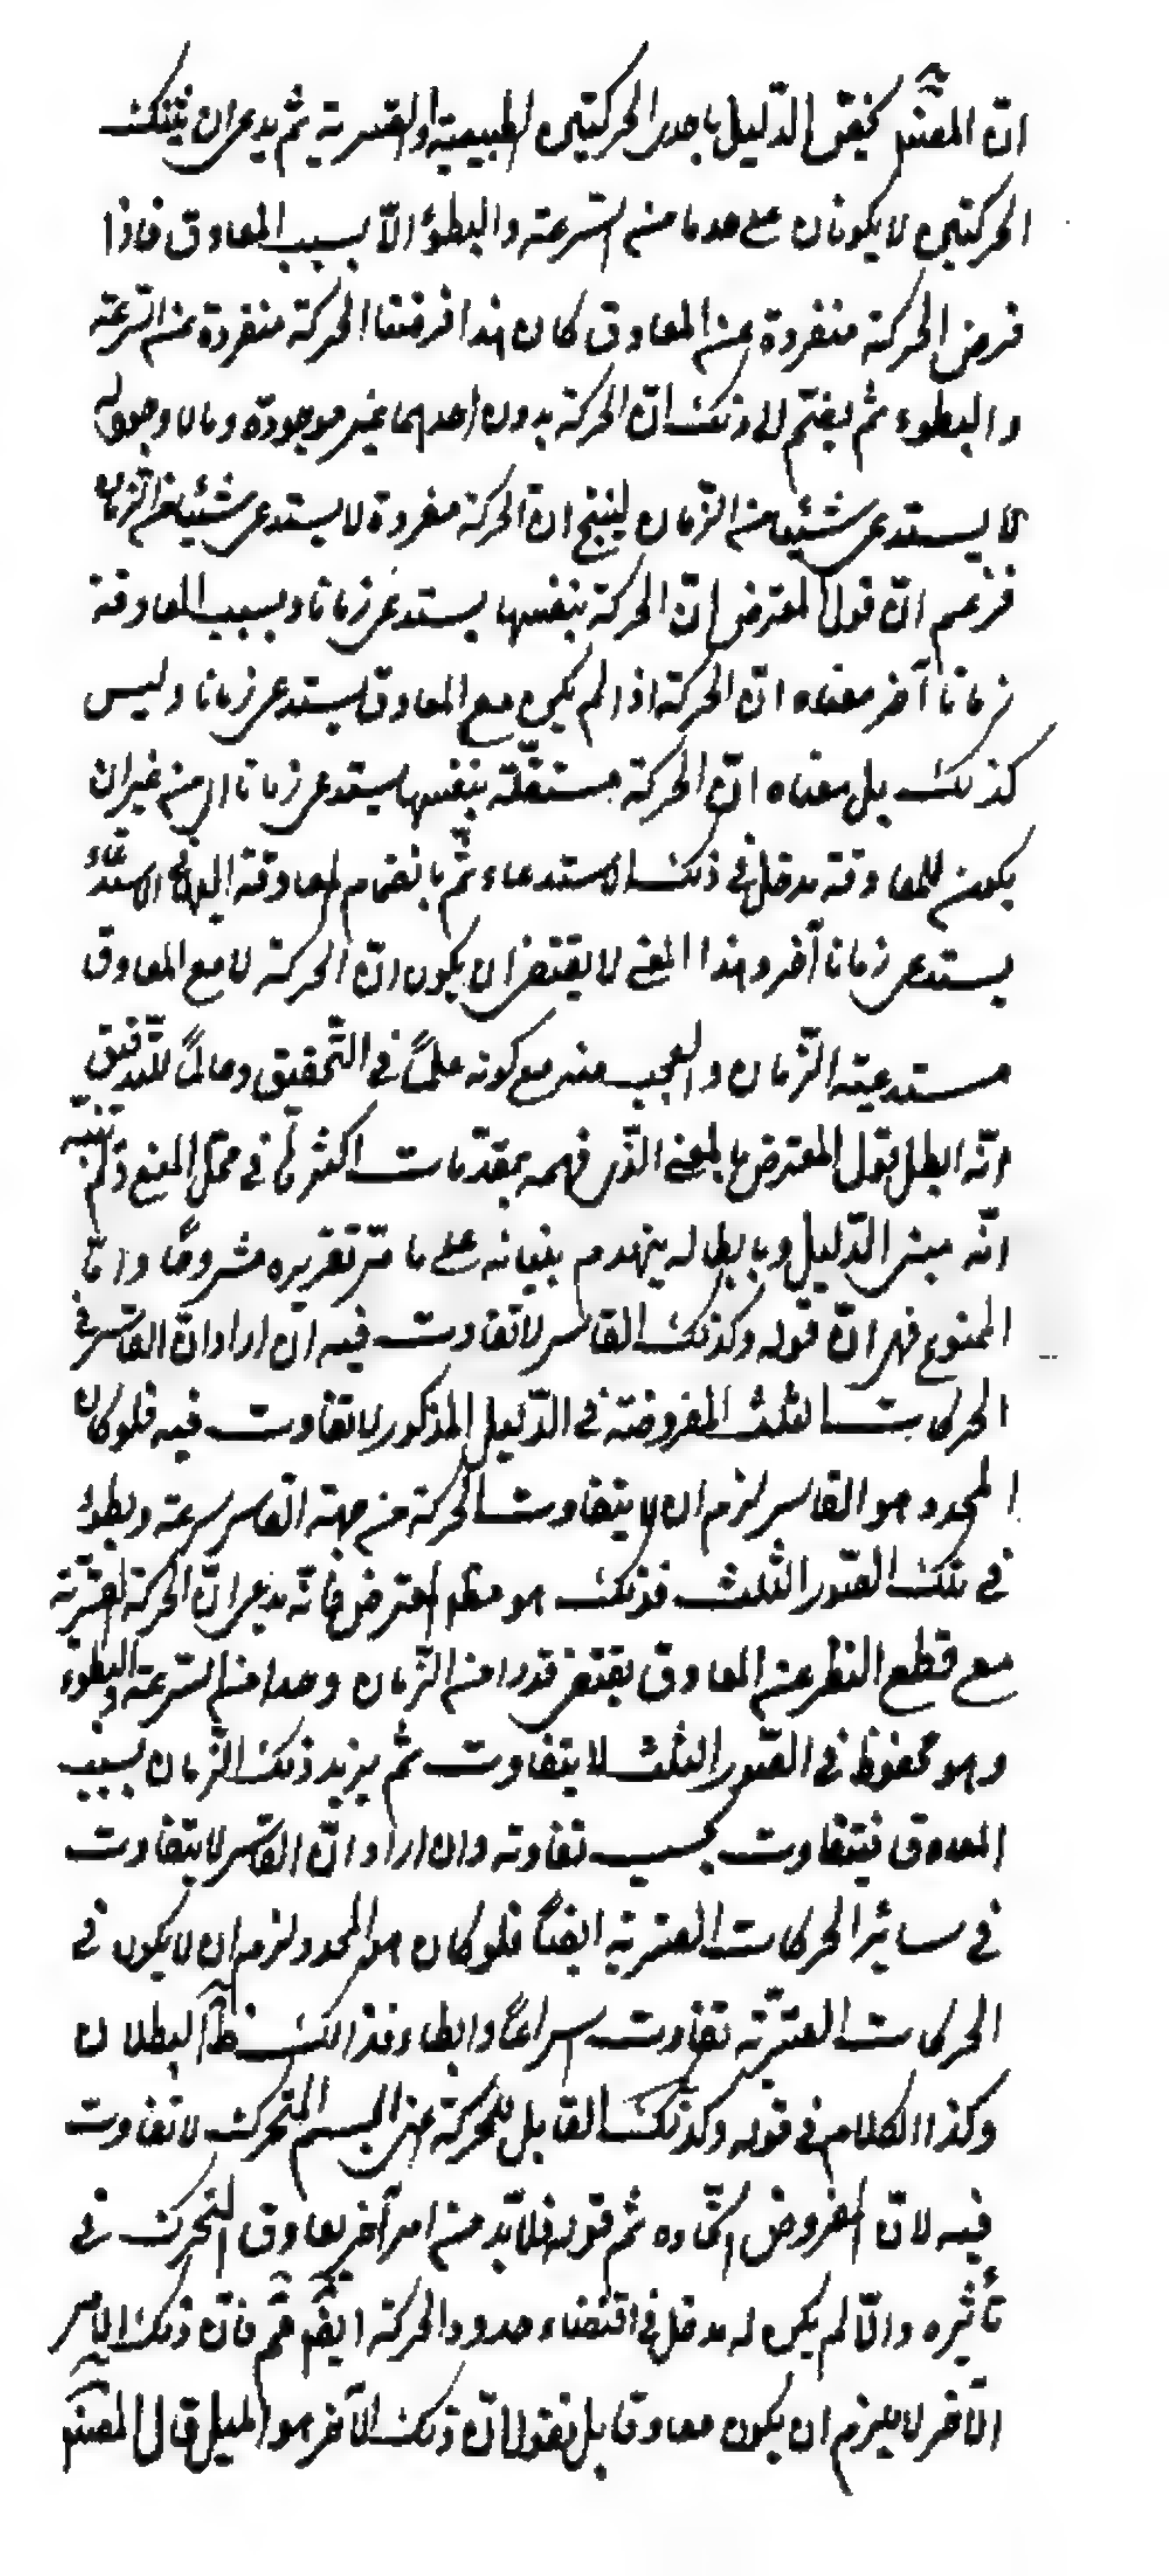 انّ المصنّف يخصّ الدّليل باحدى الحركتين الطبيعية او القسرية ثم يدعى ان تينك
الحركتين لا يكونان على حد ما من السّرعة والبطؤ الّا بسبب المعاوق فاذا
فرض الحركة منفردة عن المعاوق كان هذا فرضنا الحركة منفردة عن السّرعة
والبطوء ثم يضمّ الى ذلك انّ الحركة بدون احدهما غير موجودة وما لا وجود له
لا يستدعى شيئا من الزّمان لينتج انّ الحركة مفردة لا يستدعى شيئا من الزّمان
فزعم انّ قول المعترض انّ الحركة بنفسها يستدعى زمانا وبسبب المعاوقة
زمانا آخر معناه انّ الحركة اذا لم يكن مع المعاوق يستدعى زمانا وليس
كذلك بل معناه انّ الحركة مستقلّة بنفسها يستدعى زمانا اى من غير ان
يكون للمعاوقة مدخل فى ذلك الاستدعاء ثمّ بانضمام المعاوقة اليها فى الاستدعاء
يستدعى زمانا آخر وهذا المعنى لا يقتضى ان يكون انّ الحركة لا مع المعاوق
مستدعية الزّمان والعجب منه مع كونه علماً فى التّحقيق وعالماً للتّدقيق
انّه ابطل قول المعترض بالمعنى الّذى فهمه بمقدّمات اكثرها فى محلّ المنع ولم يتنبّه
انّه مبنى الدّليل وبابطاله ينهدم بنيانه على ما مرّ تقريره مشروحاً وامّا
المنوع فهى انّ قوله وكذلك القاسر لا تفاوت فيه ان اراد انّ القاسر فى
الحركات الثلث المفروضة فى الدّليل المذكور لا تفاوت فيه فلو كان
المحدد هو القاسر لزم ان لا يتفاوت الحركة من جهة القاسر سرعة وبطؤ
فى تلك الصّور الثلث فذلك هو مطلوب المعترض فانّه يدعى انّ الحركة القسريّة
مع قطع النظر عن المعاوق يقتضى قدرا من الزّمان وحدا من السّرعة والبطوء
وهو محفوظ فى الصّور الثلث لا يتفاوت ثم يزيد ذلك الزّمان بسبب
المعاوق فيتفاوت بحسب تفاوته وان اراد انّ القاسر لا يتفاوت
فى سائر الحركات القسرية ايضاً فلو كان هو المحدد لزم ان لا يكون فى
الحركات القسريّة تفاوت اسراعاً وابطاء فذلك ظاهر البطلان
وكذا الكلام فى قوله وكذلك القابل للحركة اعنى الجسم المتحرك لا تفاوت
فيه لانّ المفروض اتّحاده ثم قوله فلا بّد من امر آخر يعاوق المحرك فى
تأثيره والّا لم يكن له مدخل فى اقتضاء حدود الحركة ايضاً مم فانّ ذلك الامر
الآخر لا يلزم ان يكون معاوقا بل نقول انّ ذلك الآخر هو الميل قال المصنّف